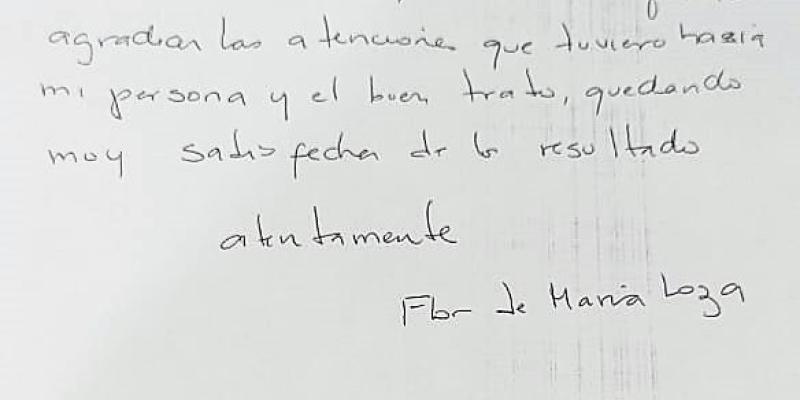 agradecer las atenciones que tuviero hacia
mi persona y el buen trato, quedando
muy satisfecha de lo resultado
atentamente
Flor de Maria Loza